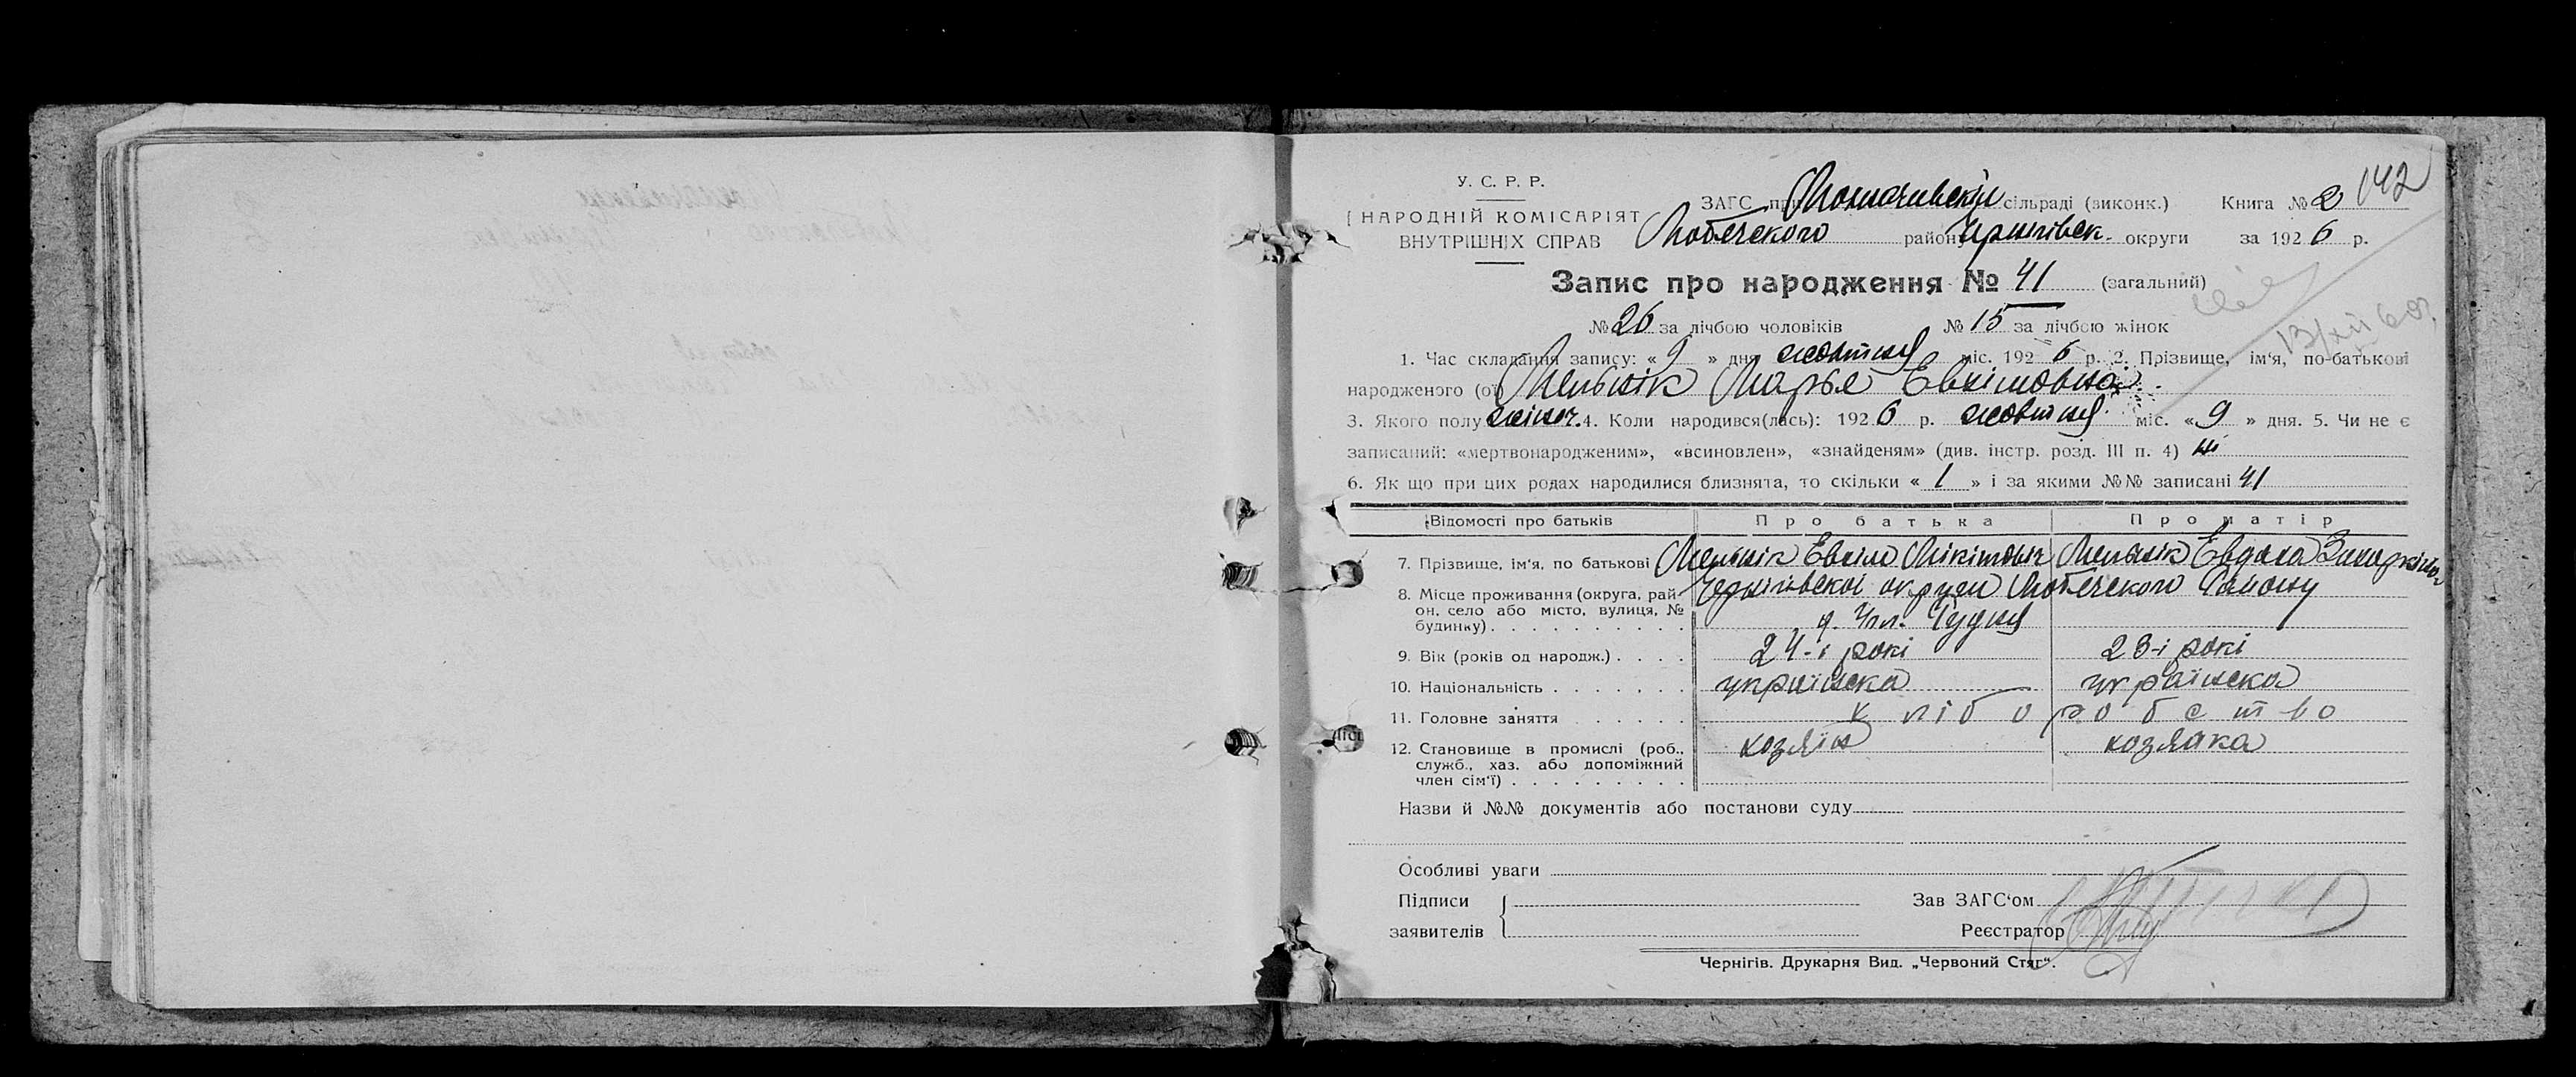 У. С. Р. Р.
НАРОДНІЙ КОМІСАРІЯТ
ВНУТРІШНІХ СПРАВ
ЗАГС при сільраді (виконк.) Книга № 2 142
Любечского район Чрнигівск. округи за 1926 р.
Запис про народження № 41 (загальний)
№ 26 за лічбою чоловіків № 15 за лічбою жінок
13/XII 60
1. Час складання запису: « 9 » дня жовтня міс. 1926 р. 2. Прізвище, ім'я, по-батькові
народженого (ої) Мельнік Марья Евхімовна
3. Якого полу жіноч. 4. Коли народився(лась): 1926 р. жовтня міс. « 9 » дня. 5. Чи не є
записаний: «мертвонародженим», «всиновлен», «знайденям» (див. інстр. розд. III п. 4) ні
6. Як що при цих родах народилися близнята, то скільки « 1 » і за якими №№ записані 41
Відомості про батьків Про батька Про матір
7. Прізвище, ім'я, по батькові Мельнік Евхім Мікітович Мельнік
8. Місце проживання (округа, рай- Чернігівскої округи Любечского Району
он, село або місто, вулиця, №
будинку) Гудня
9. Вік (років од народж.) 24-і рокі 23-і рокі
10. Національність українска українска
11. Головне заняття хлібо робство
12. Становище в промислі (роб., хозяїн хозяйка
служб., хаз. або допоміжний
член сім'ї)
Назви й №№ документів або постанови суду
Особливі уваги
Підписи Зав ЗАГС'ом
заявителів Реєстратор
Чернігів. Друкарня Вид. „Червоний Стяг“.